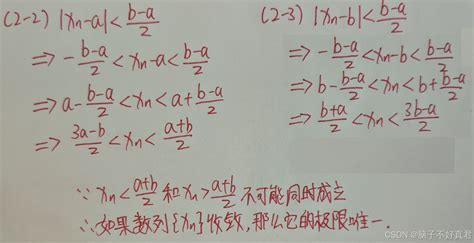 (2-2) |xn-a|<(b-a)/2
⇒ -(b-a)/2<xn-a<(b-a)/2
⇒ a-(b-a)/2<xn<a+(b-a)/2
⇒ (3a-b)/2<xn<(a+b)/2
(2-3) |xn-b|<(b-a)/2
⇒ -(b-a)/2<xn-b<(b-a)/2
⇒ b-(b-a)/2<xn<b+(b-a)/2
⇒ (b+a)/2<xn<(3b-a)/2
∵ xn<(a+b)/2 和 xn>(a+b)/2 不可能同时成立
∴ 如果数列{xn}收敛,那么它的极限唯一.
CSDN @脑子不好真君